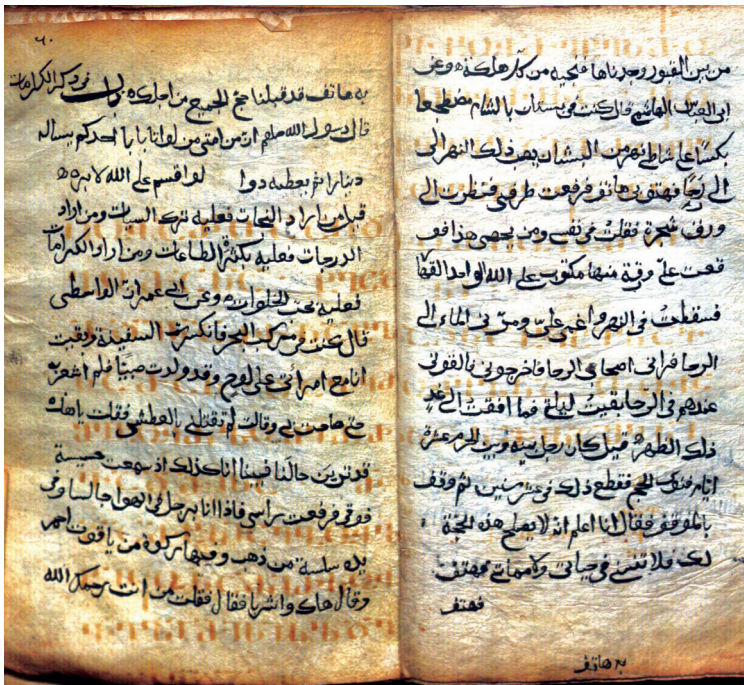 من بين القبور وجدناها فنحيه من كل هلكة ه وعن
ابى العباس الهاشمي قال كنت فى بستان بالشام مضطجعا
بكسا على شاطى نهر من البستان يصب ذلك النهر الى
الى رحا فهتف بى هاتف فرفعت طرفى فنظرت الى
ورق شجرة فقلت فى نفسى ومن يحصى هذا فو
قعت علىّ ورقة منها مكتوب على الله الواحد القها
فسقطت فى النهر واغمى علىّ ومرّ بى الماء الى
الرحا فرانى اصحاب الرحا فاخرجونى
عندهم فى الرحا بقيت ليلة فما افقت الى غد
ذلك الظهر قيل كان رجل بينه وبين الحرم عشرة
ايام الحج فقطع ذلك فى عشر سنين ثم وقف
بالموقف فقال انا اعلم انه لا يصلح هذه الحجة
لك فلا فى حياتى فهتف
فهتف
به هاتف
٦٠
به هاتف قد قبلنا حج الجميع من اجلك ه باب فى ذكر الكرامات
قال رسول الله صلعم ان من امتى من لو اتا بابا احدكم يساله
دينارا لم يعطيه دوا لو اقسم على الله لابره ه
قيل من اراد النجات فعليه بترك السيات ومن اراد
الدرجات فعليه بكثرة الطاعات ومن اراد الكرامات
فعليه الخلوات ه وعن ابى عمران الواسطى
قال كنت فى مركب البحر فانكسرت السفينة وبقيت
انا مع امراتى على لوح وقد ولدت صبيّا فلم اشعر
حتى صاحت بى وقالت لى يقتلنى العطش فقلت يا هاه
قد ترين حالنا فبينا انا كذلك اذ سمعت حسيسة
فوقى فرفعت راسى فاذا انا برجل فى الهوا جالسا وفى
يده سلسلة من ذهب وفيها ركوة من ياقوت احمر
وقال هاك واشربا فقال فقلت من انت يرحمك الله